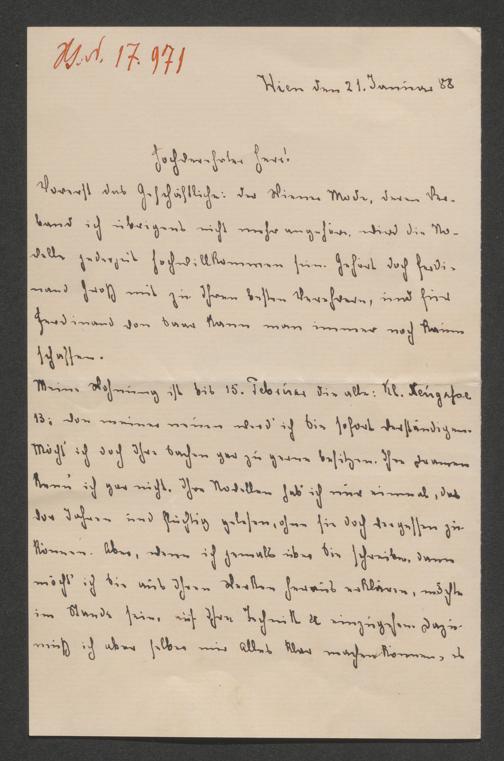 H.I.N. 17.971
Wien den 21. Januar 88
Hochverehrter Herr!
Vorerst das Geschäftliche: der Wiener Mode, deren Ver-
band ich übrigens nicht mehr angehöre, wird die No-
velle jederzeit hochwillkommen sein. Gehört doch Ferdi-
nand Groß mit zu Ihren besten Verehrern, und für
Ferdinand von Saar kann man immer noch Raum
schaffen.
Meine Wohnung ist bis 15. Februar die alte: Kl. Neugasse
13; von meiner neuen werd' ich Sie sofort verständigen.
Möcht' ich doch Ihre Sachen gar zu gerne besitzen. Ihre Dramen
kenn' ich gar nicht. Ihre Novellen hab' ich nur einmal, das
vor Jahren und flüchtig gelesen, ohne sie doch vergessen zu
können. Aber, wenn ich jemals über Sie schreibe, dann
möcht' ich Sie aus Ihren Werken heraus erklären, möchte
im Stande sein, auf Ihre Technik &c einzugehen. Dazu
muß ich aber selber mir Alles klar machen können, es